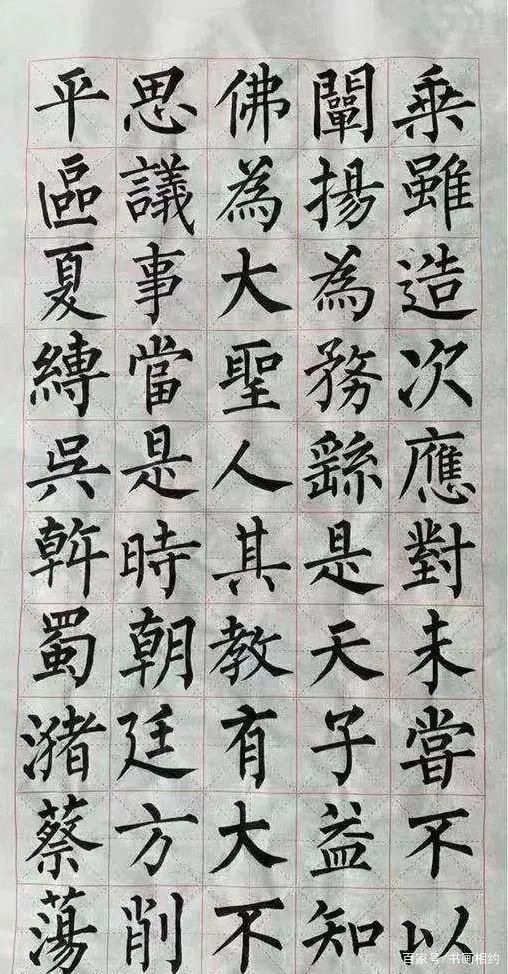 乗雖造次應對未嘗不以
闡揚為務繇是天子益知
佛為大聖人其教有大不
思議事當是時朝廷方削
平區夏縛吳斡蜀瀦蔡蕩
百家号 书画相约